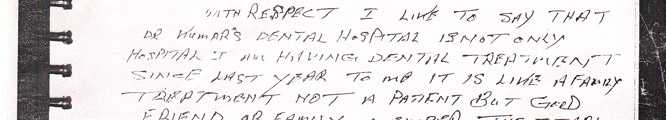 WITH RESPECT I LIKE TO SAY THAT
DR KUMAR'S DENTAL HOSPITAL IS NOT ONLY
HOSPITAL I AM HAVING DENTAL TREATMENT
SINCE LAST YEAR TO ME IT IS LIKE A FAMILY
TREATMENT NOT A PATIENT BUT GOOD
FRIEND OR FAMILY